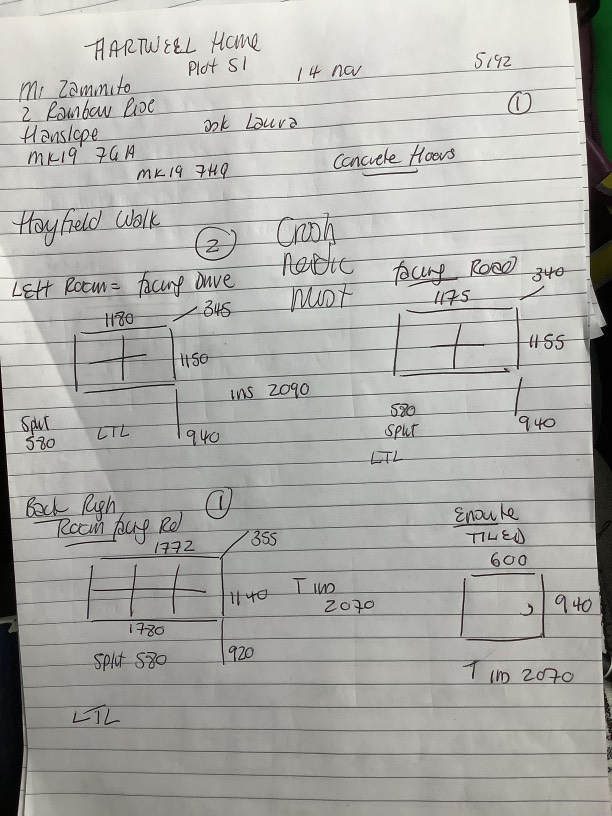 HARTWELL Home
Plot 51 14 nov 5192
Mr Zammito
2 Rainbow Rise
Hanslope ask Laura
MK19 7GA
MK19 7HQ
1
Concrete Floors
Hayfield Walk
2
Crosh
Arctic
Mist
Left Room = facing Drive
1180 345
1150
ins 2090
Split
580 LTL 940
facing Road 340
1175
1155
580
Split
LTL
940
Back Righ
Room facing Rd
1
1772 355
1140 T
2070
1780
Split 580 920
LTL
Ensuite
TILED
600
940
T 2070